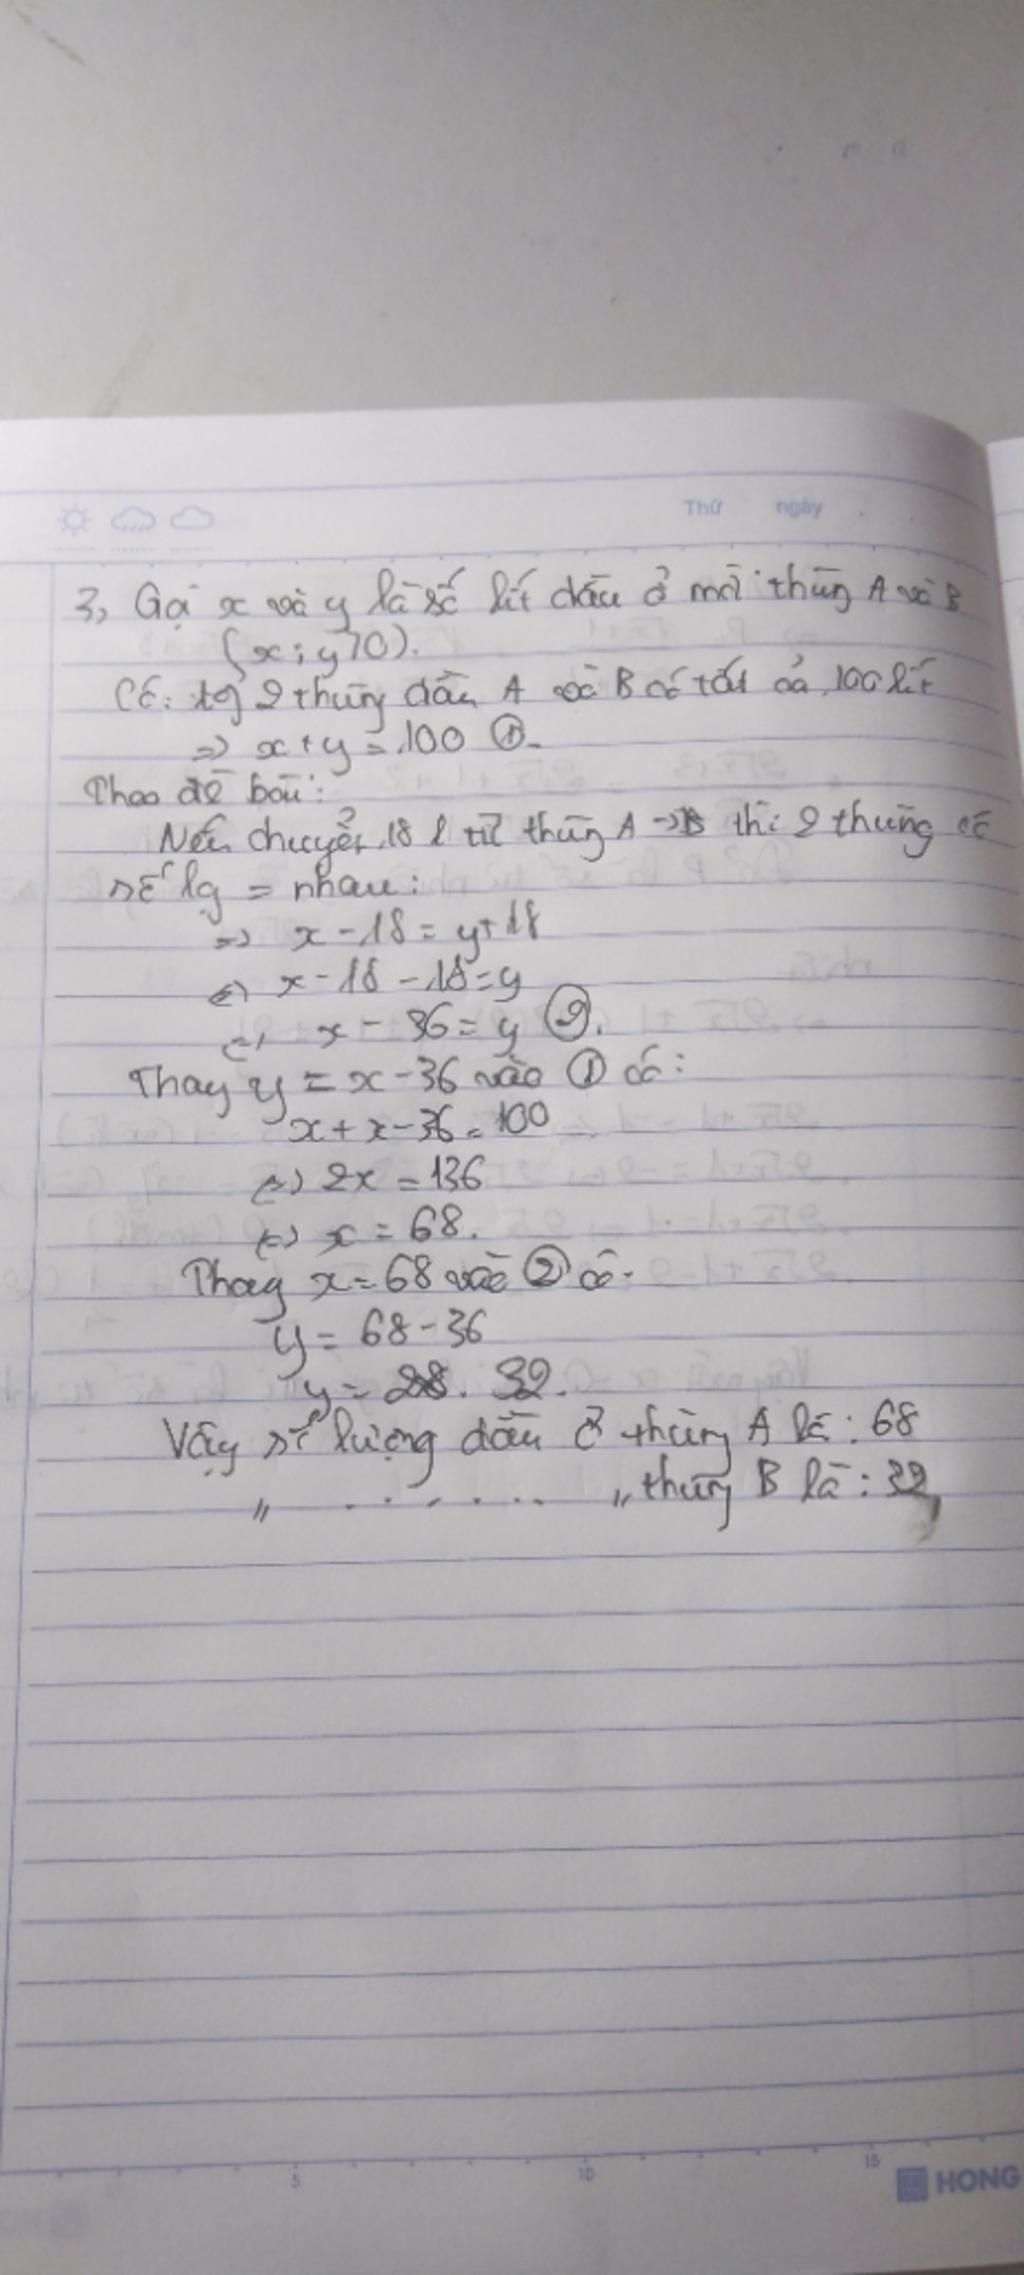 Thứ ngày
3, Gọi x và y là số lít dầu ở mỗi thùng A và B
(x; y > 0).
Có: tổng 2 thùng dầu A và B có tất cả 100 lít
=> x + y = 100 ①.
Theo đề bài:
Nếu chuyển 18 l từ thùng A -> B thì 2 thùng có
số lg = nhau:
=> x - 18 = y + 18
<=> x - 18 - 18 = y
<=> x - 36 = y ②.
Thay y = x - 36 vào ① có:
x + x - 36 = 100
<=> 2x = 136
<=> x = 68.
Thay x = 68 vào ② có.
y = 68 - 36
y = 32.
Vậy số lượng dầu ở thùng A là: 68
" . . . . . . " thùng B là: 32
5 10 15
HONG